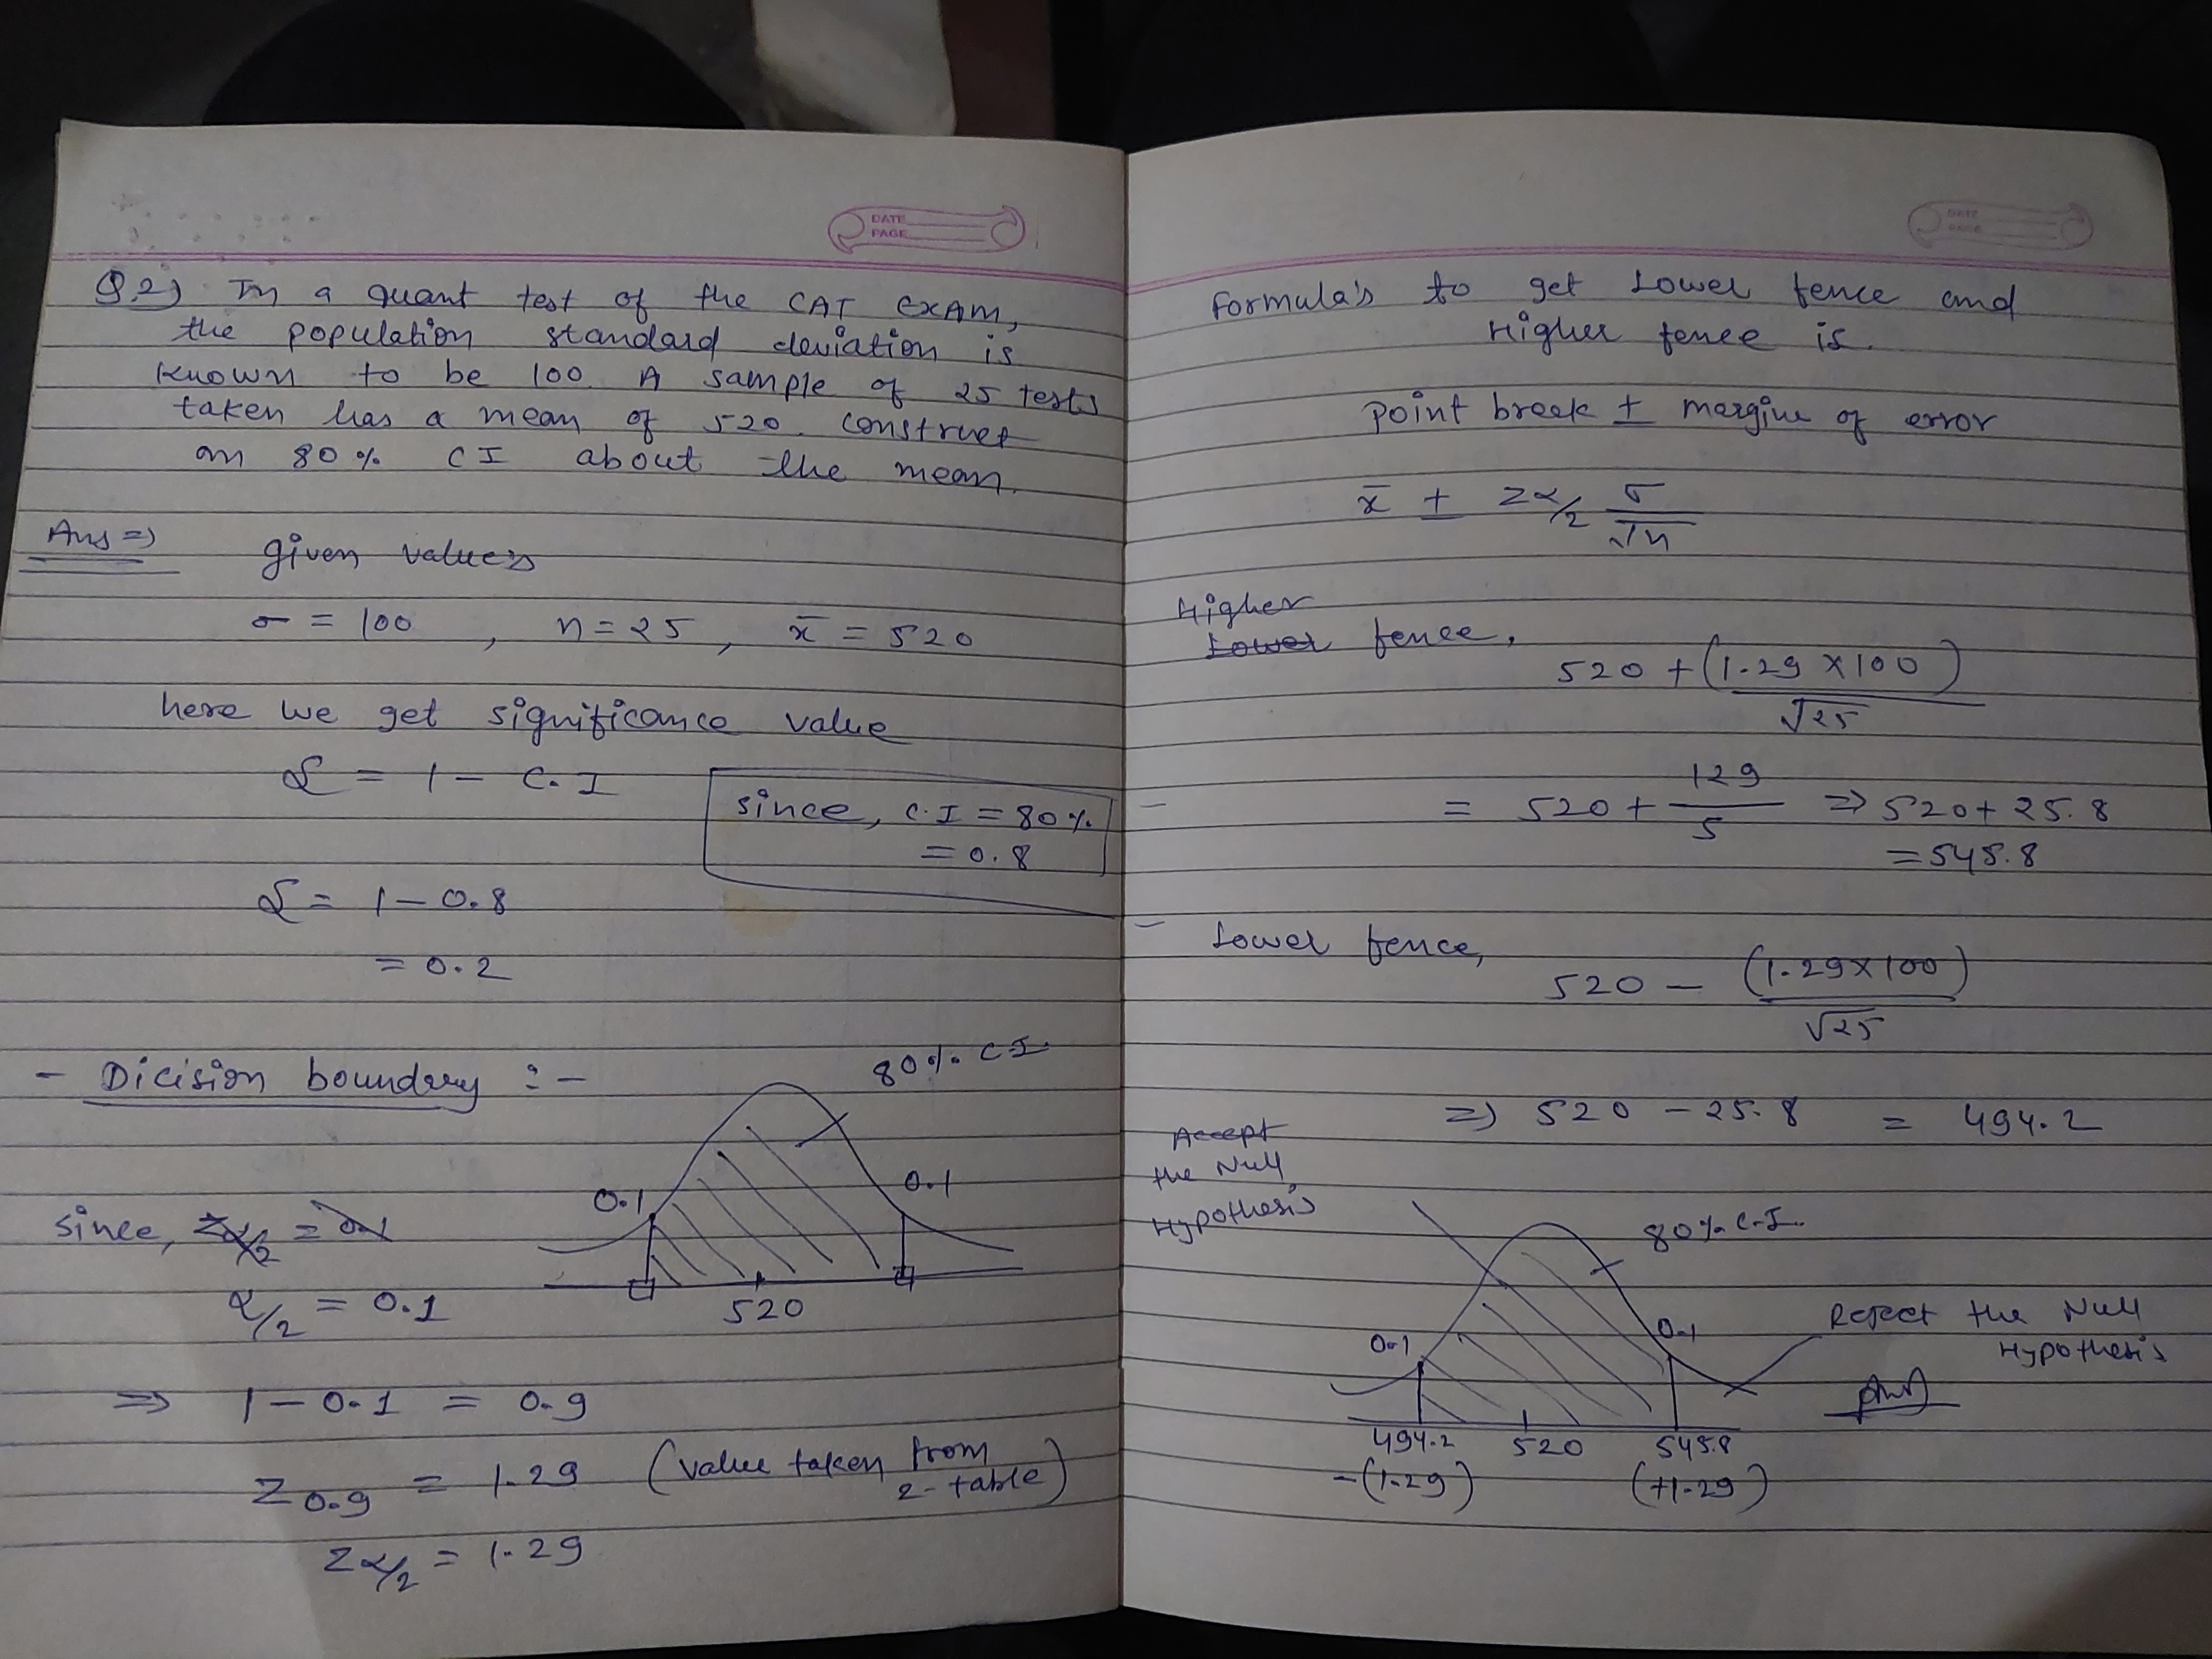 DATE
PAGE
Q.2) In a quant test of the CAT EXAM,
the population standard deviation is
known to be 100. A sample of 25 tests
taken has a mean of 520. construct
an 80% CI about the mean.
Ans => given values
σ = 100 , n = 25 , x̄ = 520
here we get significance value
α = 1 - C.I
since, C.I = 80%
= 0.8
α = 1 - 0.8
= 0.2
- Dicision boundary :-
80% C.I
since,
α/2 = 0.1
0.1
0.1
520
=> 1 - 0.1 = 0.9
Z 0.9 = 1.29 (value taken from
z-table)
Zα/2 = 1.29
DATE
PAGE
formula's to get Lower fence and
Higher fence is.
Point break ± margin of error
x̄ ± Zα/2 σ/√n
Higher
Lower fence,
520 + (1.29 × 100)/√25
- = 520 + 129/5 => 520 + 25.8
= 545.8
- Lower fence,
520 - (1.29 × 100)/√25
=> 520 - 25.8 = 494.2
Accept
the Null
Hypothesis
80% C.I.
0.1
0.1
Reject the Null
Hypothesis
494.2 520 545.8
-(1.29) (+1.29)
Ans